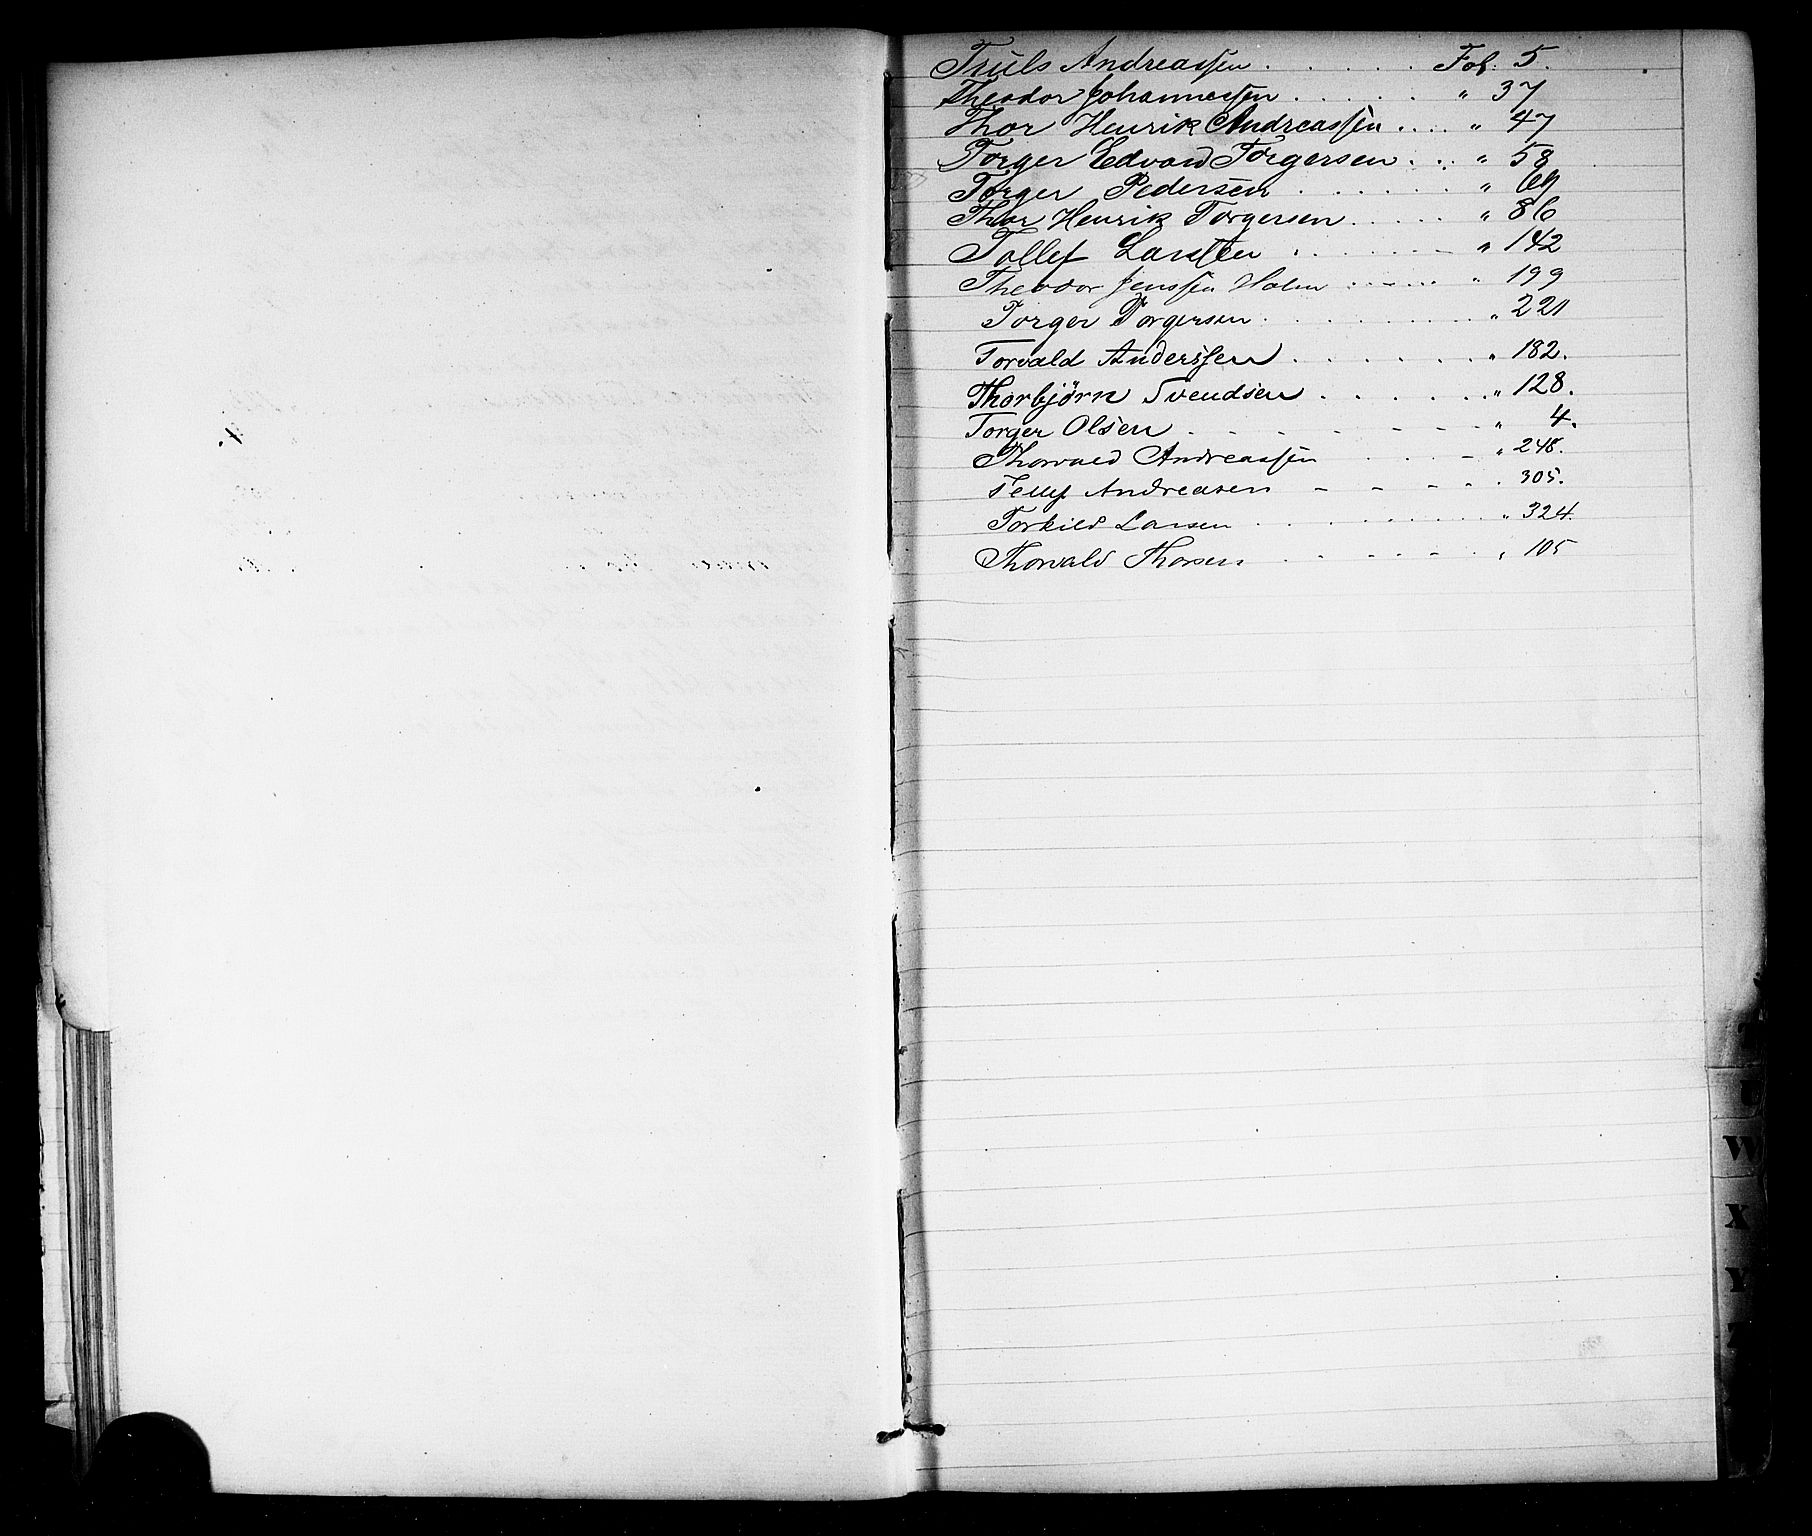 Truls Andreassen . . . . . . Fol: 5.
Theodor Johannessen . . . . . " 37
Thor Henrik Andreassen .... " 47
Torger Edvard Torgersen . . . " 58
Torger Pedersen . . . . . . "
Thor Henrik Torgersen . . . . . " 86
Tollef Larssen . . . . . . " 142
Theodor Jenssen Holm . . . . . . " 199
Torger Torgersen . . . . . . . " 221
Torvald Anderssen . . . . . . . " 182.
Thorbjørn Svendsen . . . . . . " 128.
Torger Olsen . - . - - - - - - " 4.
Thorvald Andreassen . . . - " 248.
Tellef Andreasen - - - - - . 305.
Torkild Larsen . . . . . . . . " 324.
Thorvald Thorsen . - . . . - , 105
W
X
Y
Z